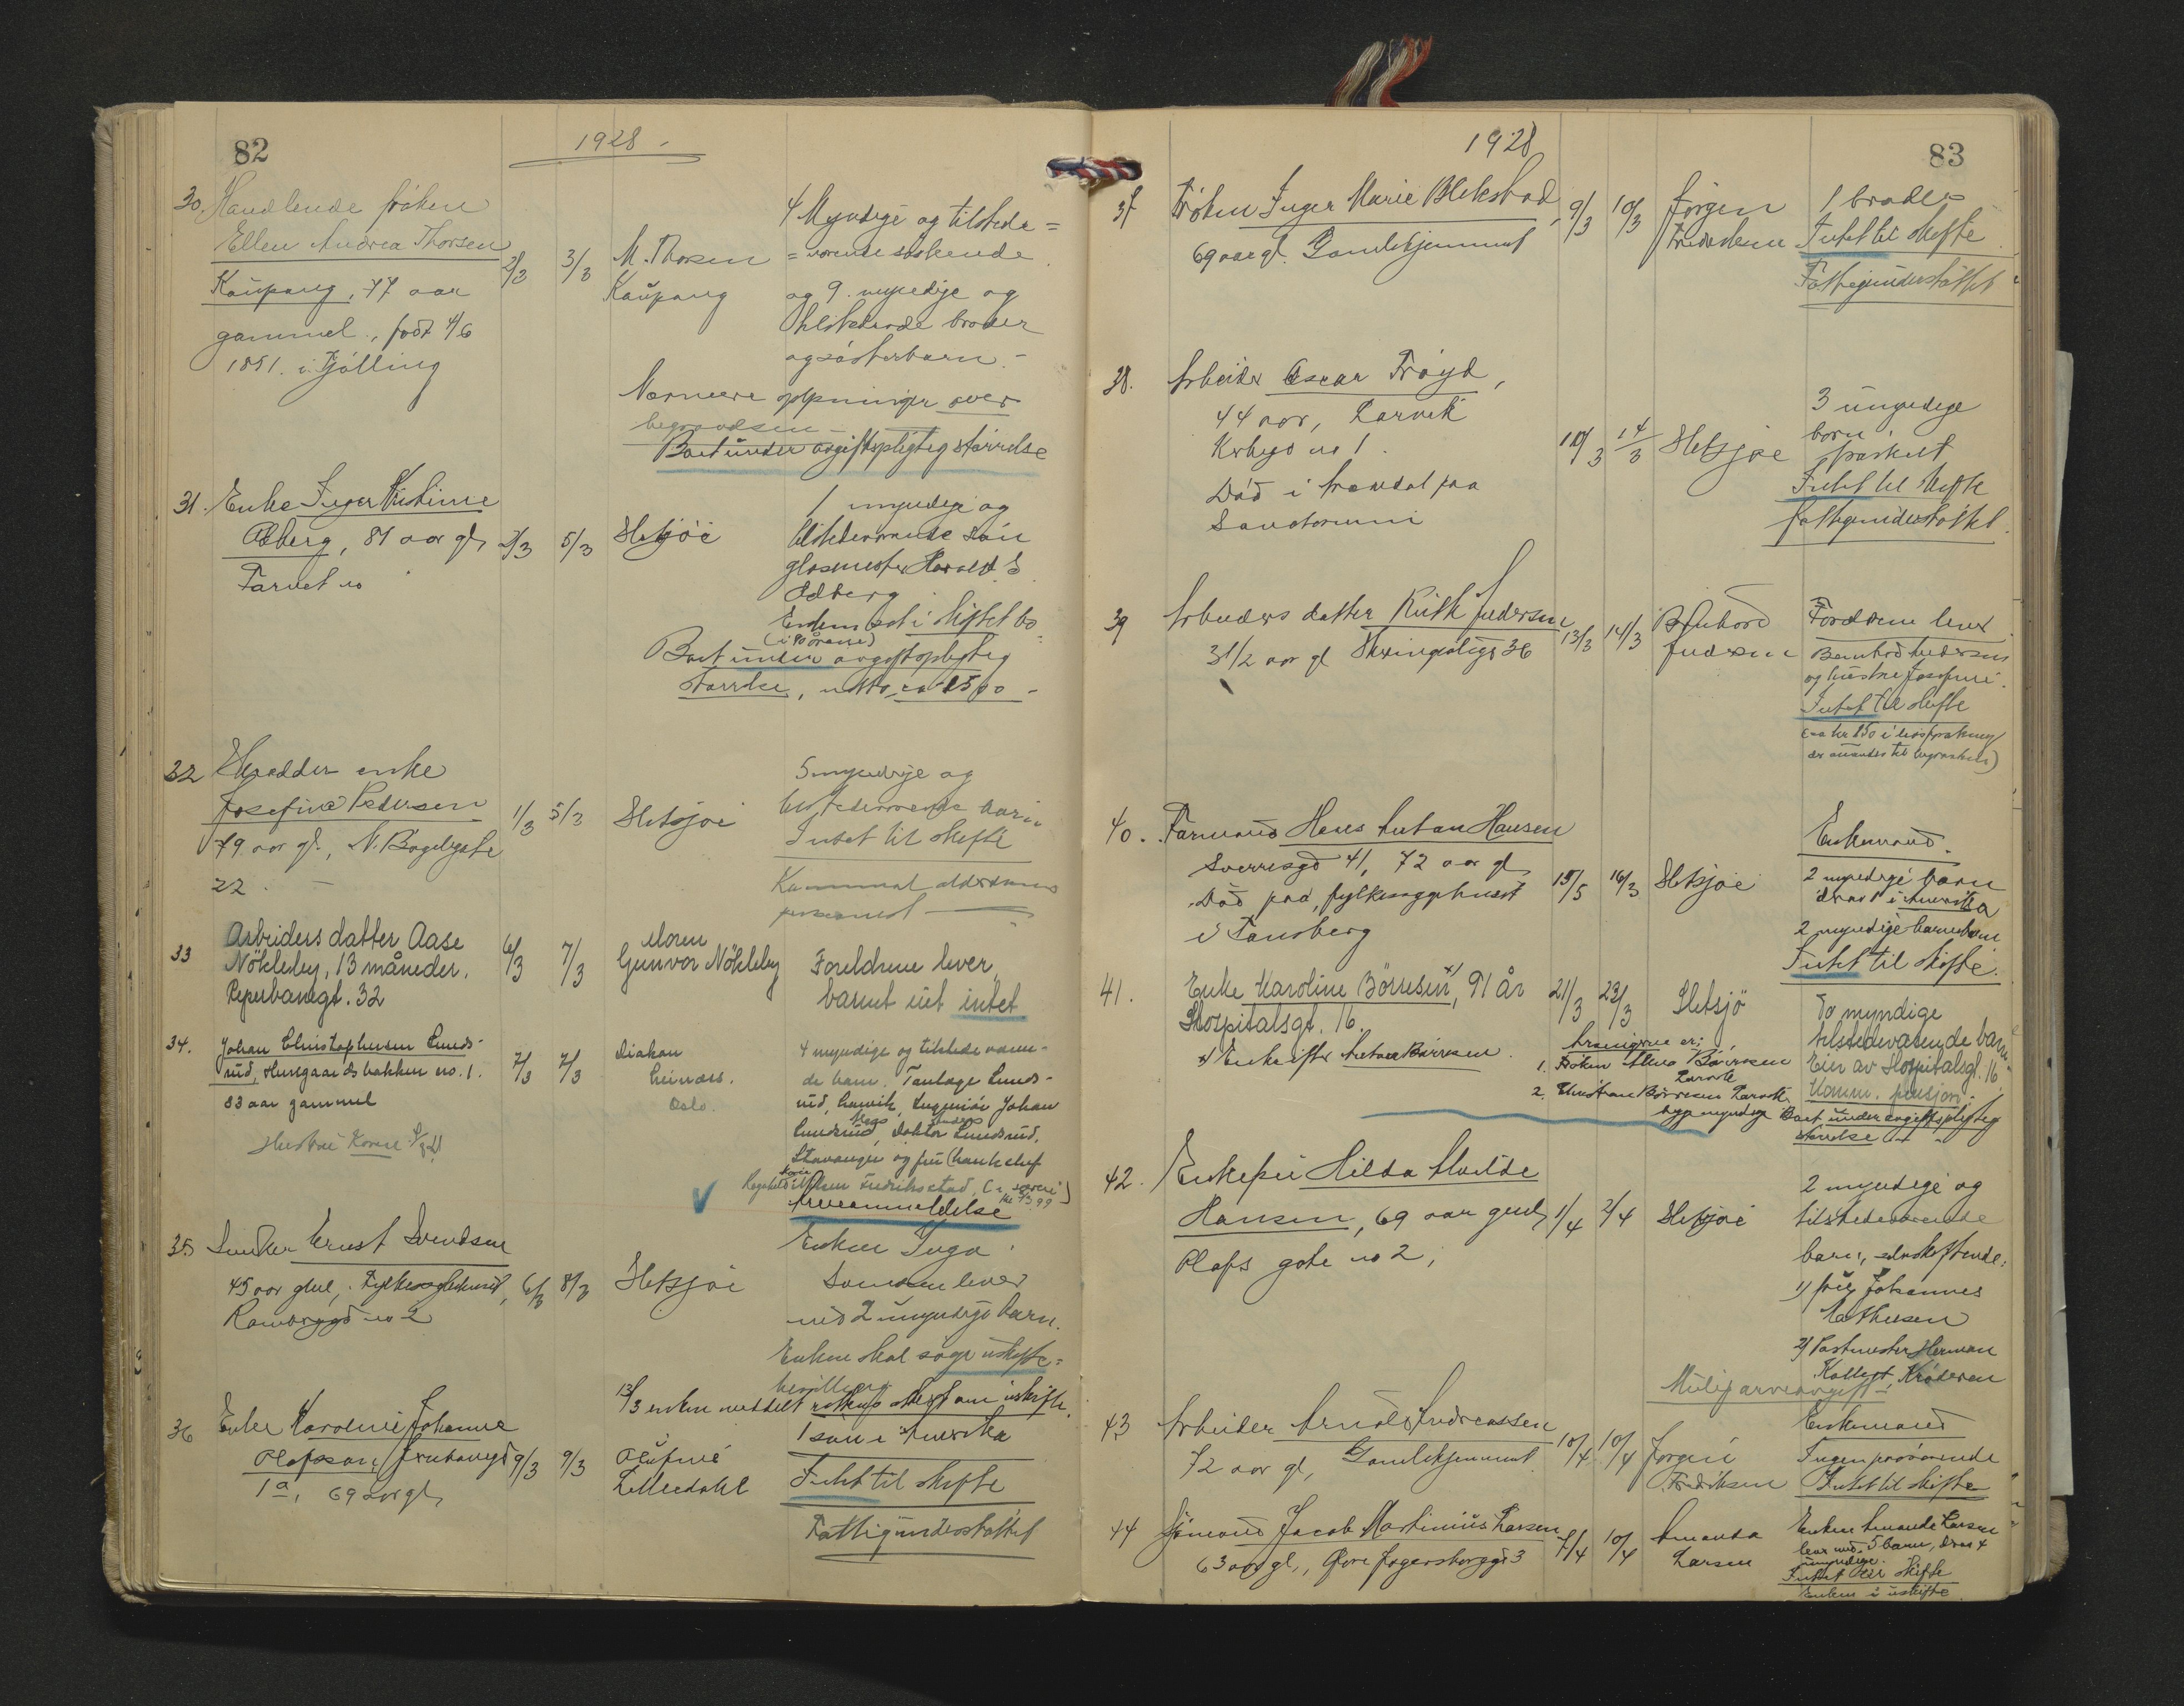 82
1928 -
30. Handlende frøken
Ellen Andrea Thorsen
Kaupang, 77 aar
gammel, født 4/6
1851. i Tjølling
2/3 3/3
M. Thorsen
Kaupang
4 Myndige og tilstede=
=værende søskende
og 9 myndige og
tilstedende broder
og søsterbarn. -
Nærmere oplysninger over
begravelsen
Boet under avgiftspligtig størrelse
31. Enke Inger Kristine
Ødberg, 81 aar gl,
Torvet no
2/3 5/3
Hetsjøe
1 myndig og
tilstedeværende søn
glasmester Harald S
Ødberg
Enken sat i skiftet bo
(i 90 årene)
Boet under avgiftspligtig
størrelse, netto ca 1500 -
32 Skrædder enke
Josefine Pedersen
79 aar gl., N. Bøgelygate
22. -
1/3 5/3
Hetsjøe
5 myndige og
tilstedeværende barn
Intet til skifte
Kommunal alderdoms
pensionist
33 Arbeiders datter Aase
Nökleby, 13 måneder.
Reperbanegt. 32
6/3 7/3
Moren
Gunvor Nökleby
Foreldrene lever,
barnet eiet intet
34. Johan Christophersen Lunds-
rud, Herregaardsbakken no. 1.
83 aar gammel
Hustru Karen
7/3 7/3
Diakon
Oslo.
4 myndige og tilstedeværen-
de barn. Tanlæge Lunds-
rud, Larvik, Ingeniør Johan
Lundsrud, Doktor Lundsrud,
Stavanger og fru bankchef
Fredrikstad.
Arveanmeldelse
35 Snekker Ernst Svendsen
45 aar gml, Fylkessykehuset,
no 2
6/3 8/3
Hetsjøe
Enken Inga
Svendsen lever
med 2 umyndige barn.
Enken skal søge uskifte=
bevilling
13/3 enken meddelt rettens attest om uskifte.
36 Enke Karoline Johanne
Olafsson,
1a, 69 aar gl,
9/3 9/3
Olufine
Lilledahl
1 søn i Amerika
Intet til skifte
Fattigunderstøttet
1928
83
37 Frøken Inger Marie Blekstad,
69 aar gl. Gamlehjemmet
9/3 10/3
Jørgen
Fredriksen
1 broder
Intet til skifte
Fattigunderstøttet
38. Arbeider Oscar Frøyd,
44 aar, Larvik
no 1.
Død i paa
Sanatorium
10/3 14/3
Hetsjøe
3 umyndige
barn,
fraskilt
Intet til skifte
fattigunderstøttet.
39 Arbeiders datter Ruth Andersen
3 1/2 aar gl 36
13/3 14/3
Bernhard
Andersen
Foreldrene lever
Bernhard Andersen
og hustru Josefine.
Intet til skifte
(ca kr 150 i livsforsikring
der anvendes til begravelsen)
40. Formand Hans Anton Hansen
Sverresgd 41, 72 aar gl,
Død paa fylkessygehuset
i Tønsberg
15/5 16/3
Hetsjøe
Enkemand.
2 myndige barn
derav 1 i Amerika
2 myndige barnebarn
Intet til skifte.
41. Enke Karoline Börresen x), 91 år
Hospitalsgt. 16.
x) Enke efter Anton Børresen.
21/3 23/3
Hetsjö
To myndige
tilstedeværende barn
Eier av Hospitalsgt. 16.
Komm. pensjon.
Arvingerne er:
1. Frøken Børresen
Larvik
2. Christian Børresen Larvik
begge myndige
Boet under avgiftspligtig
størrelse
42. Enkefru Hilda Mathilde
Hansen, 69 aar gml,
Olafs gate no 2,
1/4 2/4
Hetsjøe
2 myndige og
tilstedeværende
barn, selvskiftende:
1) fru Johannes
Mathisen
2) Postmester Herman
Krøderen
Mulig arveavgift
43 Arbeider Arnold Andreassen
72 aar gl, Gamlehjemmet
10/4 10/4
Jørgen
Fredriksen
Enkemand
Ingen gjenværende
Intet til skifte
44 Sjømand Jacob Martinius Larsen
63 aar gl., Øvre Jegersborggt 3
7/4 10/4
Amanda
Larsen
Enken Amanda Larsen
lever med 5 barn, derav 4
umyndige.
Intet til skifte
Enken i uskifte